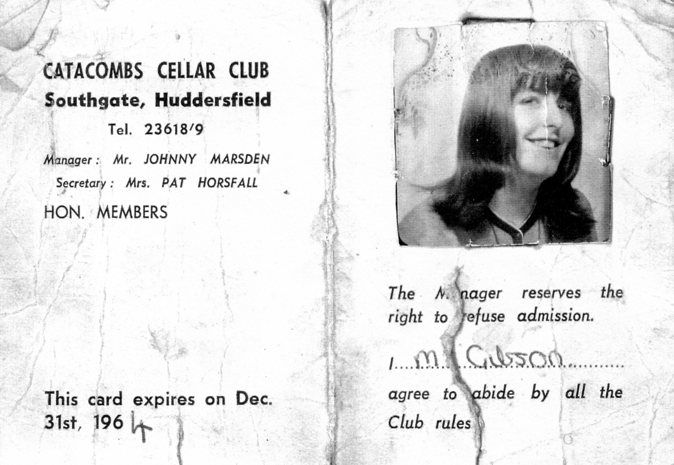 CATACOMBS CELLAR CLUB
Southgate, Huddersfield
Tel. 23618/9
Manager: Mr. JOHNNY MARSDEN
Secretary: Mrs. PAT HORSFALL
HON. MEMBERS
This card expires on Dec.
31st, 1964
The Manager reserves the
right to refuse admission.
I M Gibson
agree to abide by all the
Club rules